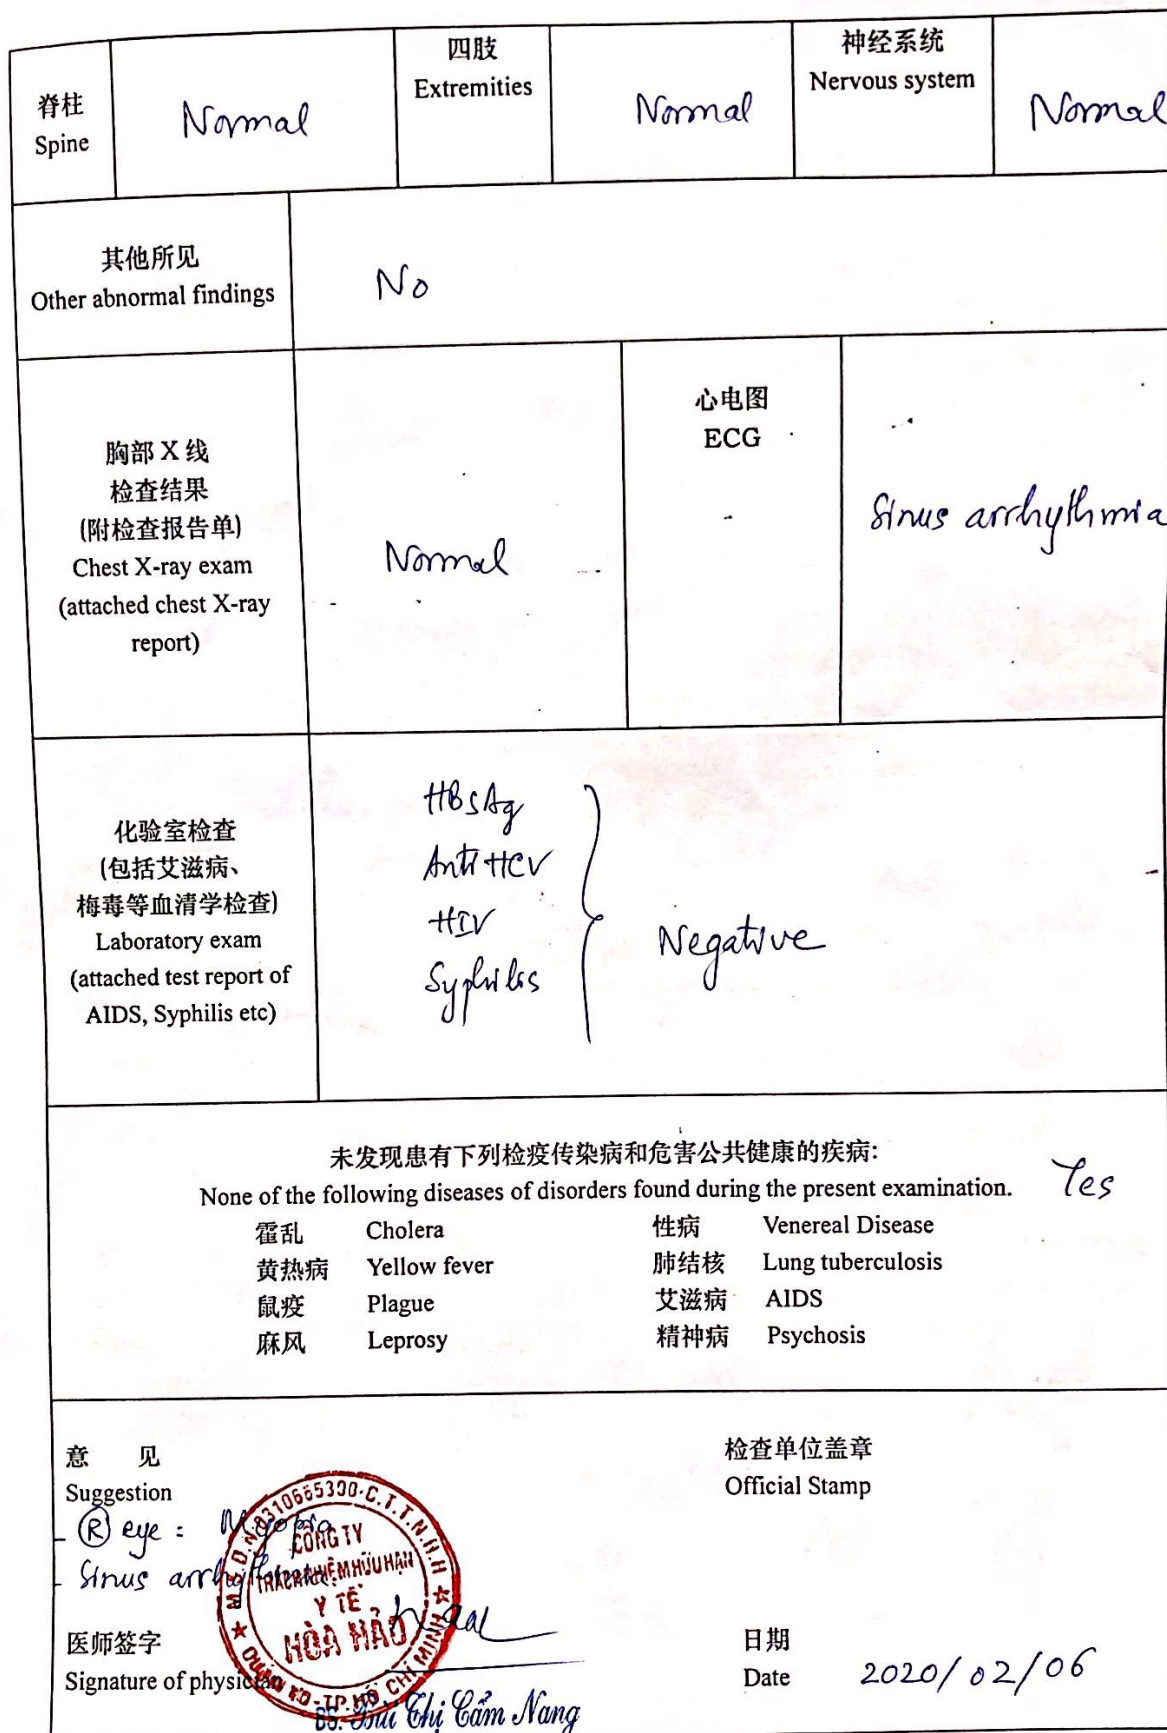 脊柱
Spine
Normal
四肢
Extremities
Normal
神经系统
Nervous system
Normal
其他所见
Other abnormal findings
No
胸部 X 线
检查结果
(附检查报告单)
Chest X-ray exam
(attached chest X-ray
report)
Normal
心电图
ECG
Sinus arrhythmia
化验室检查
(包括艾滋病、
梅毒等血清学检查)
Laboratory exam
(attached test report of
AIDS, Syphilis etc)
HBsAg
Anti HCV
HIV
Syphilis
Negative
未发现患有下列检疫传染病和危害公共健康的疾病:
None of the following diseases of disorders found during the present examination. Yes
霍乱 Cholera 性病 Venereal Disease
黄热病 Yellow fever 肺结核 Lung tuberculosis
鼠疫 Plague 艾滋病 AIDS
麻风 Leprosy 精神病 Psychosis
意 见
Suggestion
- Ⓡ eye : Myopia
- Sinus arrhythmia
检查单位盖章
Official Stamp
M.S.D.N:0310665300-C.T.T.N.H.H
CÔNG TY
TRÁCH NHIỆM HỮU HẠN
Y TẾ
HÒA HẢO
TP.HỒ CHÍ MINH
医师签字
Signature of physician
BS. Bùi Thị Cẩm Nang
日期
Date 2020/02/06